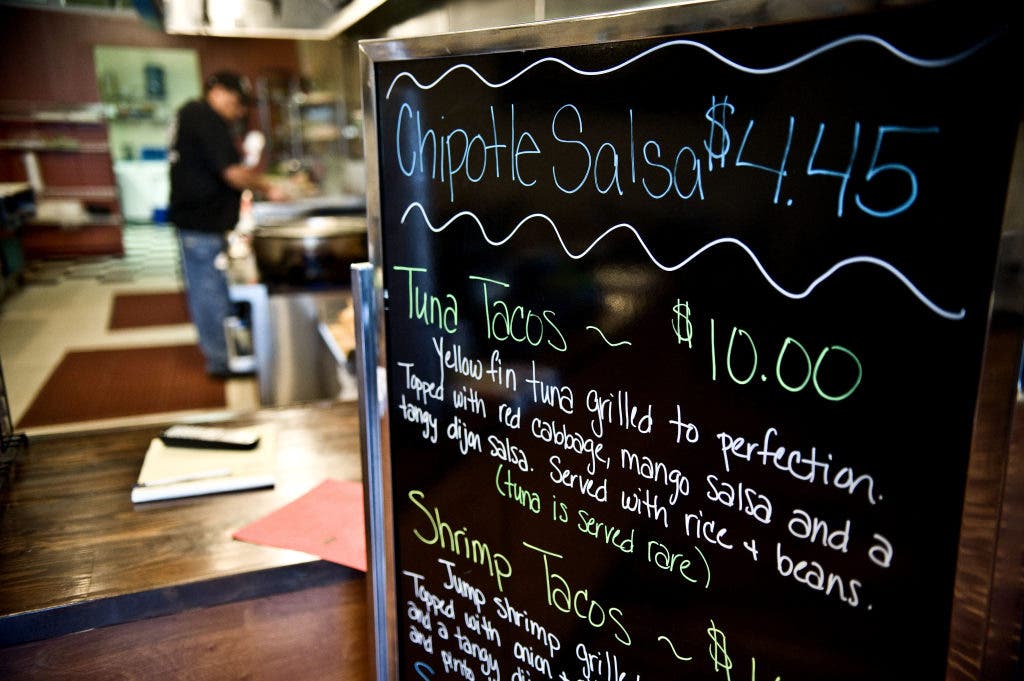 Chipotle Salsa $4.45
Tuna Tacos ~ $10.00
Yellowfin tuna grilled to perfection.
Topped with red cabbage, mango salsa and a
tangy dijon salsa. Served with rice + beans.
(tuna is served rare)
Shrimp Tacos ~ $1
Jump shrimp grille
Topped with onion
and a tangy di
and pinto
S